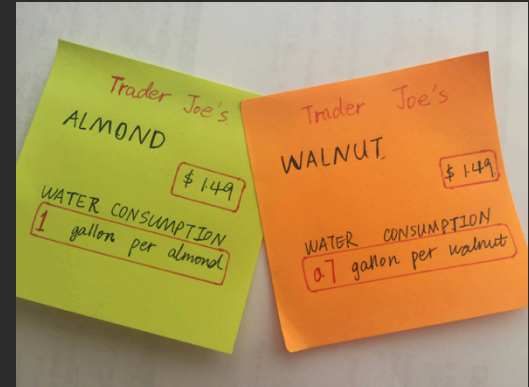 Trader Joe's
ALMOND
$ 1.49
WATER CONSUMPTION
1 gallon per almond
Trader Joe's
WALNUT
$ 1.49
WATER CONSUMPTION
0.7 gallon per walnut